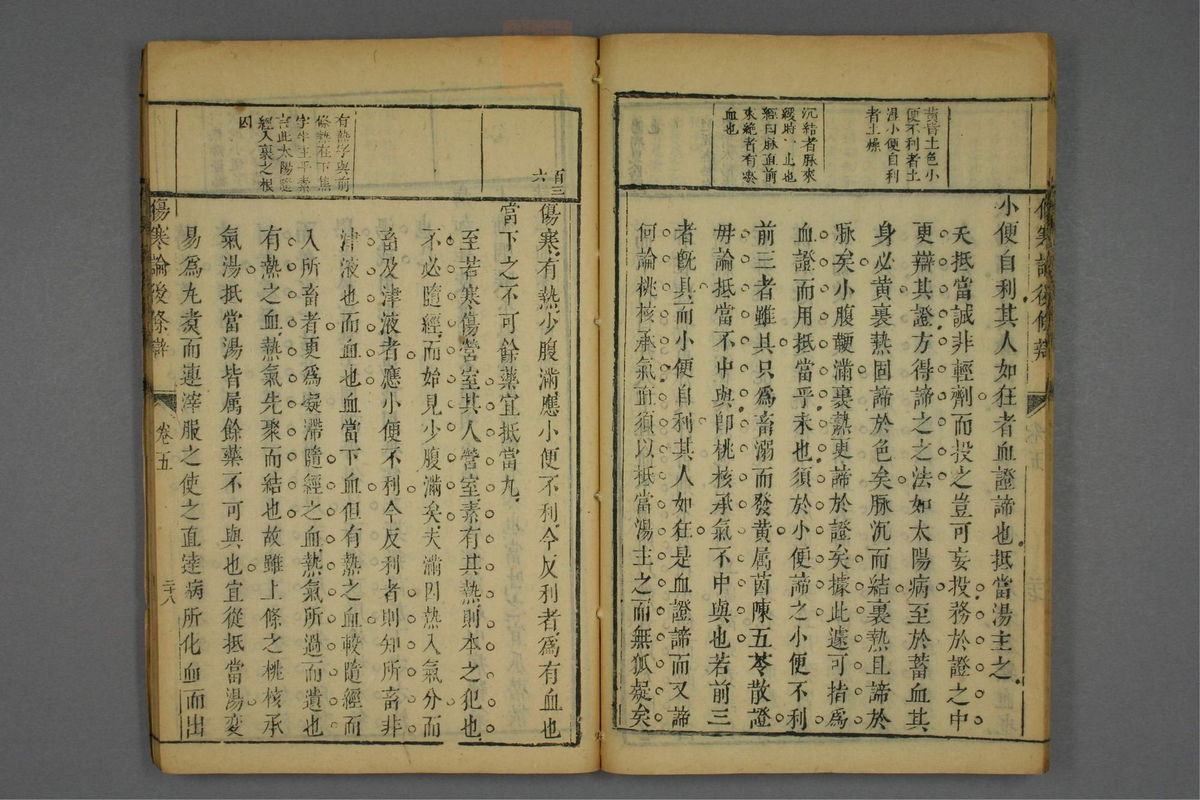 黃者土色小
便不利者土
濕小便自利
者土燥
沉結者脉來
緩時一止也
經曰脉血前
來絶者有瘀
血也
小便自利其人如狂者血證諦也抵當湯主之
夫抵當誠非輕劑而投之豈可妄投務於證之中
更辯其證方得諦之之法如太陽病至於蓄血其
身必黃裏熱固諦於色矣脉沉而結裏熱且諦於
脉矣小腹鞕滿裏熱更諦於證矣據此遽可指爲
血證而用抵當乎未也須於小便諦之小便不利
前三者雖具只爲畜溺而發黃属茵陳五苓散證
毋論抵當不中與卽桃核承氣不中與也若前三
者旣具而小便自利其人如狂是血證諦而又諦
何論桃核承氣直須以抵當湯主之而無狐疑矣
傷寒論後條辯
百三
六
有熱字與前
條熱在下焦
字生主乎素
言此太陽隨
經入裏之根
因
傷寒有熱少腹滿應小便不利今反利者爲有血也
當下之不可餘藥宜抵當九
至若寒傷營室其人營室素有其熱則本之犯也
不必隨經而始見少腹滿矣夫滿因熱入氣分而
畜及津液者應小便不利今反利者則知所畜非
津液也而血也血當下血但有熱之血較隨經而
入所畜者更爲凝滯隨經之血熱氣所過而遺也
有熱之血熱氣先聚而結也故雖上條之桃核承
氣湯抵當湯皆属餘藥不可與也宜從抵當湯変
易爲九煑而連滓服之使之直達病所化血而出
傷寒論後條辯
卷五
二十八